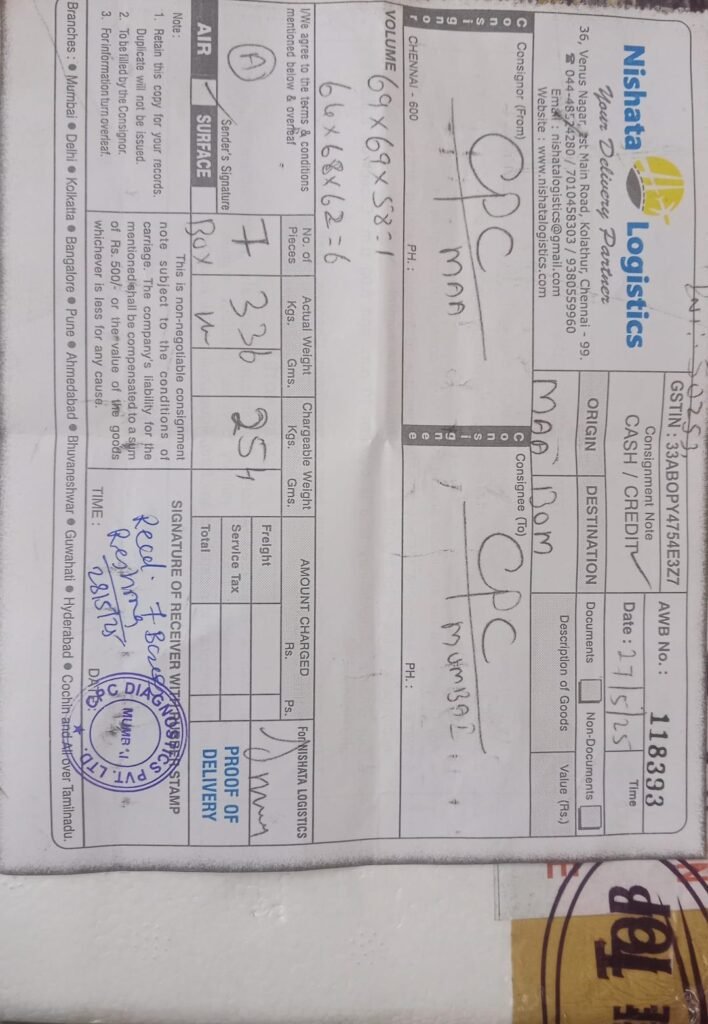 Nishata Logistics
Your Delivery Partner
36, Venus Nagar, 1st Main Road, Kolathur, Chennai - 99.
☎ 044-48574280 / 7010458303 / 9380559960
Email : nishatalogistics@gmail.com
Website : www.nishatalogistics.com
GSTIN : 33ABOPY4754E3Z7
Consignment Note
CASH / CREDIT ✓
AWB No. : 118393
Date : 27/5/25
Time
ORIGIN
DESTINATION
MAA
BOM
Documents
Non-Documents
Description of Goods
Value (Rs.)
Consignor
Consignor (From)
CPC
MAA
CHENNAI - 600
PH. :
Consignee
Consignee (To)
CPC
MUMBAI
PH. :
VOLUME 69 x 69 x 58 = 1
66 x 68 x 62 = 6
I/We agree to the terms & conditions
mentioned below & overleaf
A
Sender's Signature
AIR
SURFACE
No. of
Pieces
7
Box
Actual Weight
Kgs. Gms.
336
Chargeable Weight
Kgs. Gms.
254
AMOUNT CHARGED
Rs. Ps.
Freight
Service Tax
Total
For NISHATA LOGISTICS
PROOF OF
DELIVERY
Note :
1. Retain this copy for your records.
Duplicate will not be issued.
2. To be filled by the Consignor.
3. For information turn overleaf.
This is non-negotiable consignment
note subject to the conditions of
carriage. The company's liability for the
mentioned is shall be compensated to a sum
of Rs. 500/- or the value of the goods
whichever is less for any cause.
SIGNATURE OF RECEIVER WITH RUBBER STAMP
Recd. 7 Boxes
Reshma
28/5/25
DIAGNOSTICS PVT. LTD.
MUMBAI
TIME :
DATE :
Branches : ● Mumbai ● Delhi ● Kolkatta ● Bangalore ● Pune ● Ahmedabad ● Bhuvaneshwar ● Guwahati ● Hyderabad ● Cochin and All over Tamilnadu.